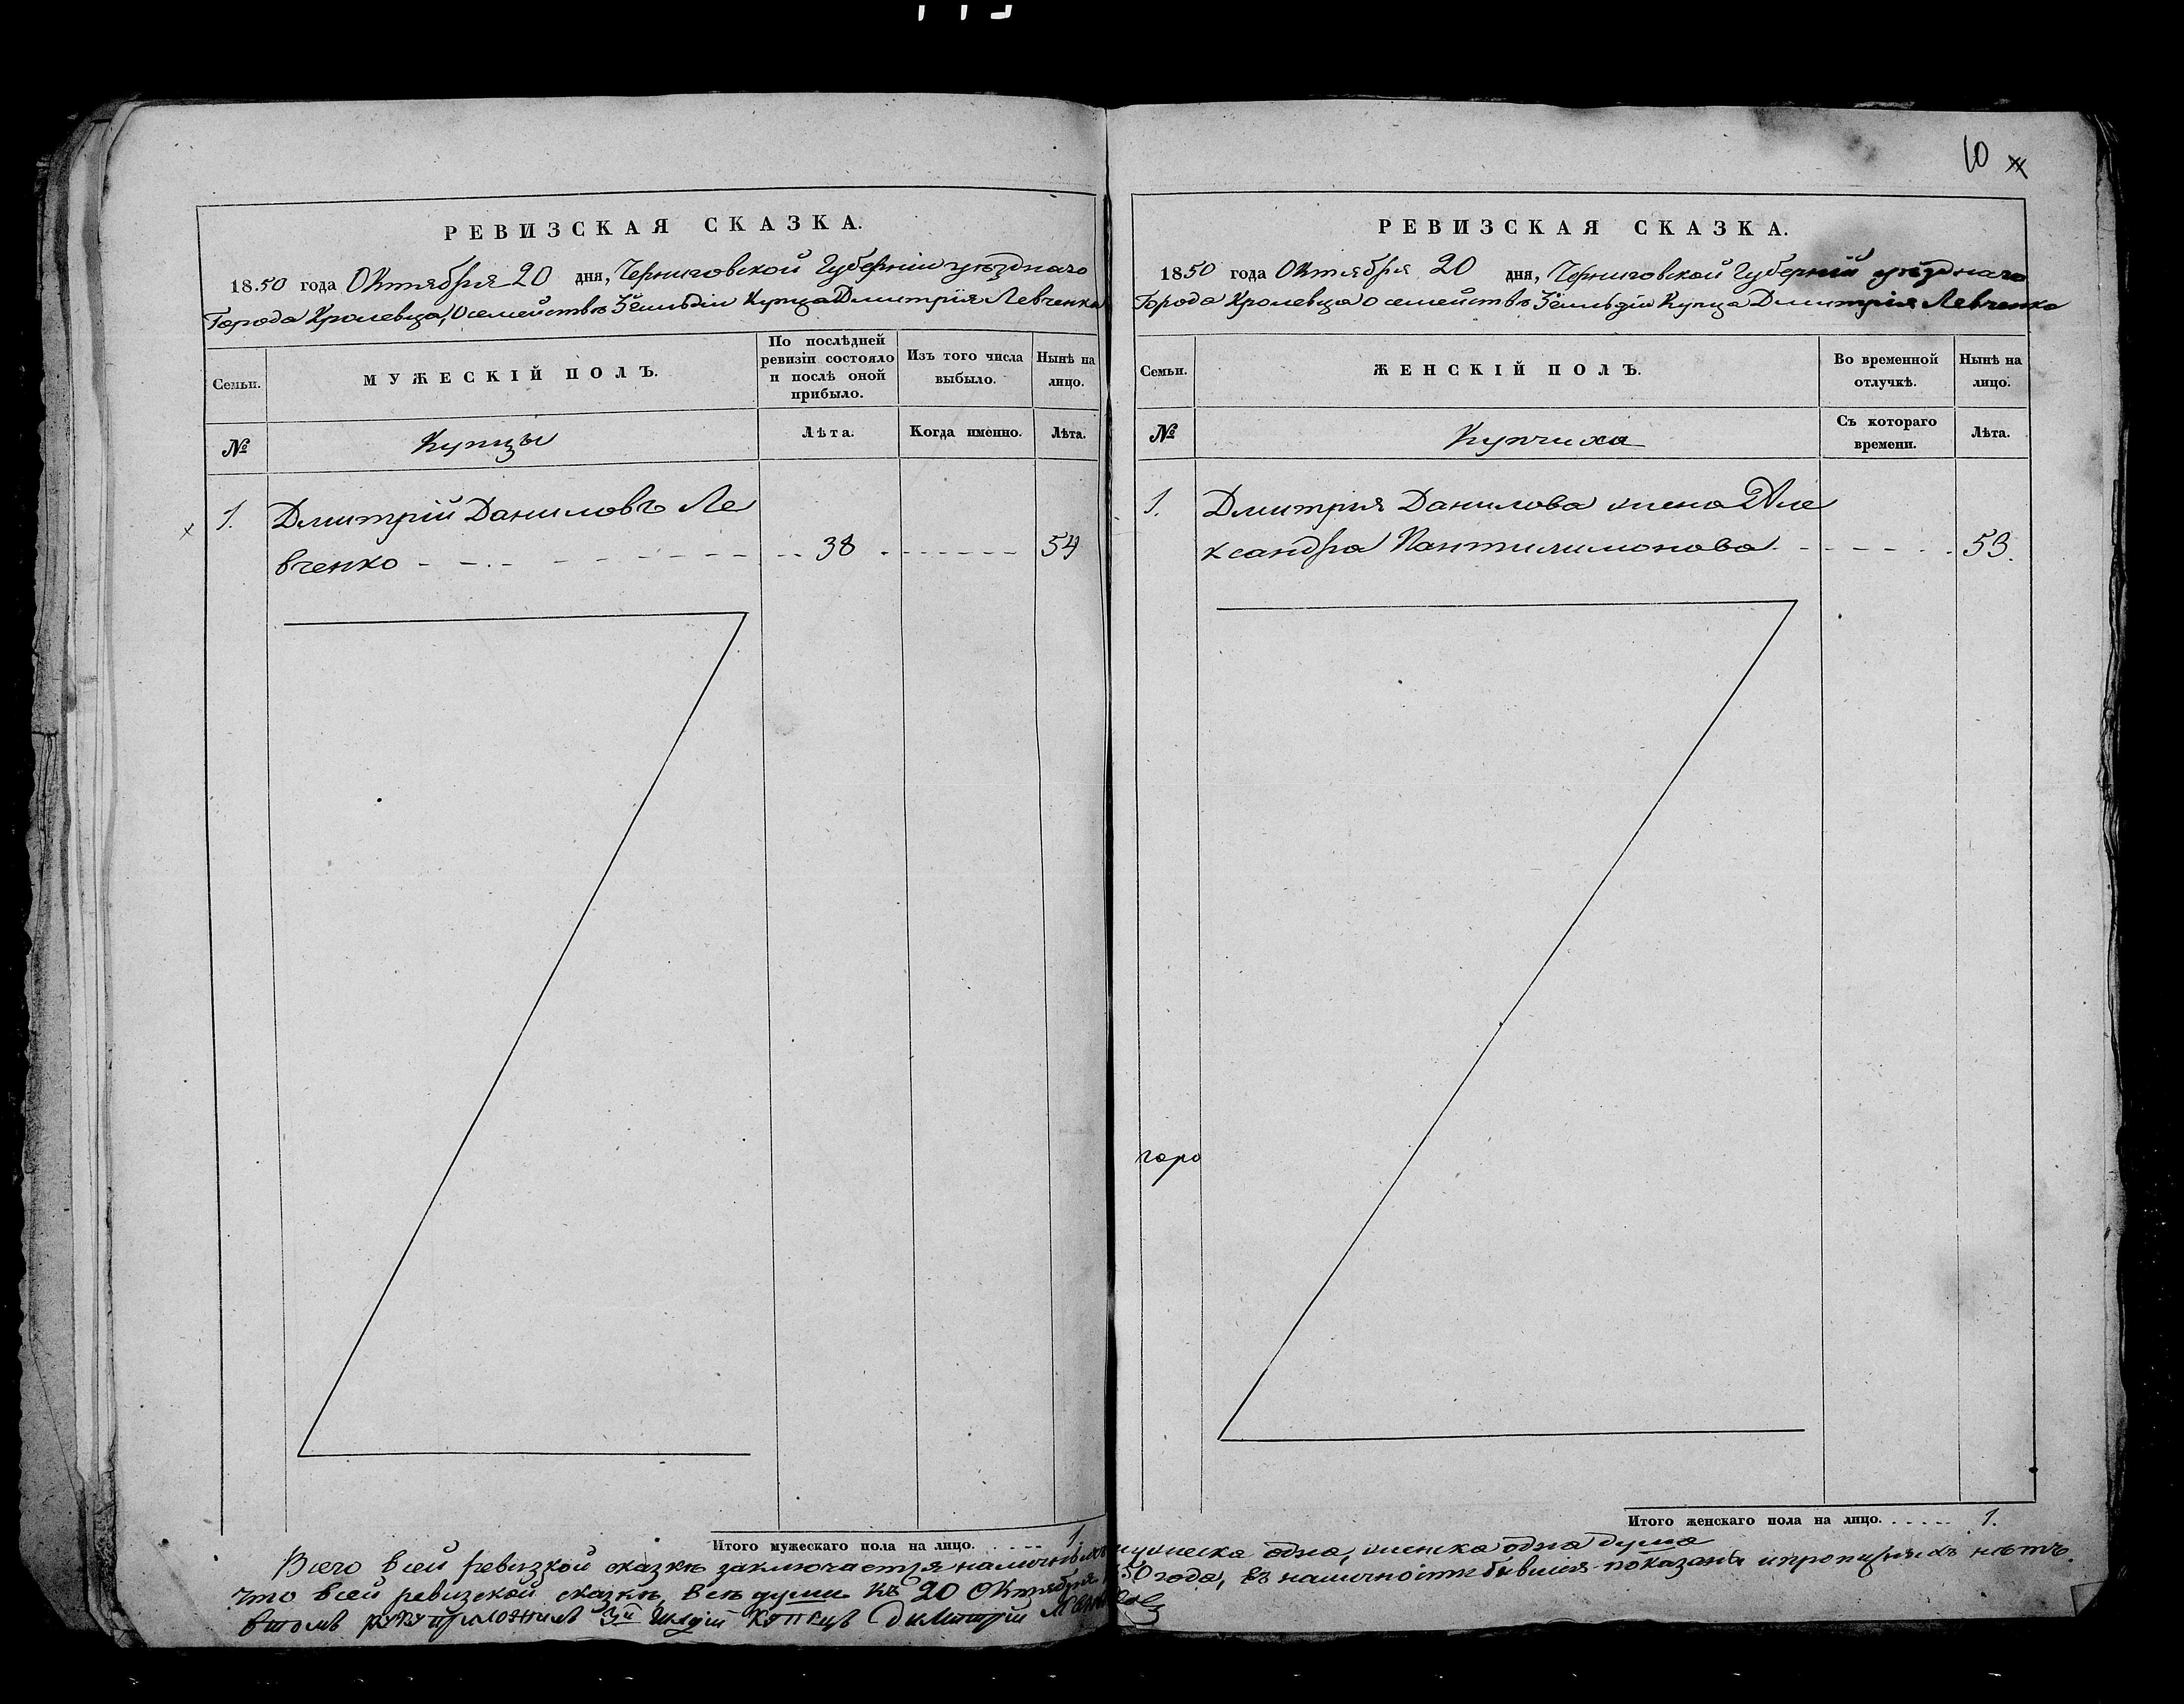 10
РЕВИЗСКАЯ СКАЗКА.
1850 года Октября 20 дня, Черниговской Губерніи уѣзднаго
Города Кролевца, о семействѣ 3й гильдіи Купца Дмитрія Левченка
Семьи.
МУЖЕСКІЙ ПОЛЪ.
По послѣдней
ревизіи состояло
и послѣ оной
прибыло.
Изъ того числа
выбыло.
Нынѣ на
лицо.
№
Купцы
Лѣта.
Когда именно.
Лѣта.
1. Дмитрій Даниловъ Ле
вченко 38 54
Итого мужескаго пола на лицо. 1
РЕВИЗСКАЯ СКАЗКА.
1850 года Октября 20 дня, Черниговской Губерніи уѣзднаго
Города Кролевца о семействѣ 3й гильдіи Купца Дмитрія Левченка
Семьи.
ЖЕНСКІЙ ПОЛЪ.
Во временной
отлучкѣ.
Нынѣ на
лицо.
№
Купчиха
Съ котораго
времени.
Лѣта.
1. Дмитрия Данилова жена Але
ксандра Пантилимонова 53.
горо
Итого женскаго пола на лицо. 1.
Всего всей ревизкой сказкѣ заключается наличныхъ мужеска одна, женска одна душа
что всей ревизской сказкѣ, всѣ души къ 20 Октября 1850 года, въ наличности бывшия показаны и пропущеныхъ нѣтъ.
втомъ руку приложилъ 3й гилдіи купецъ Димитрий